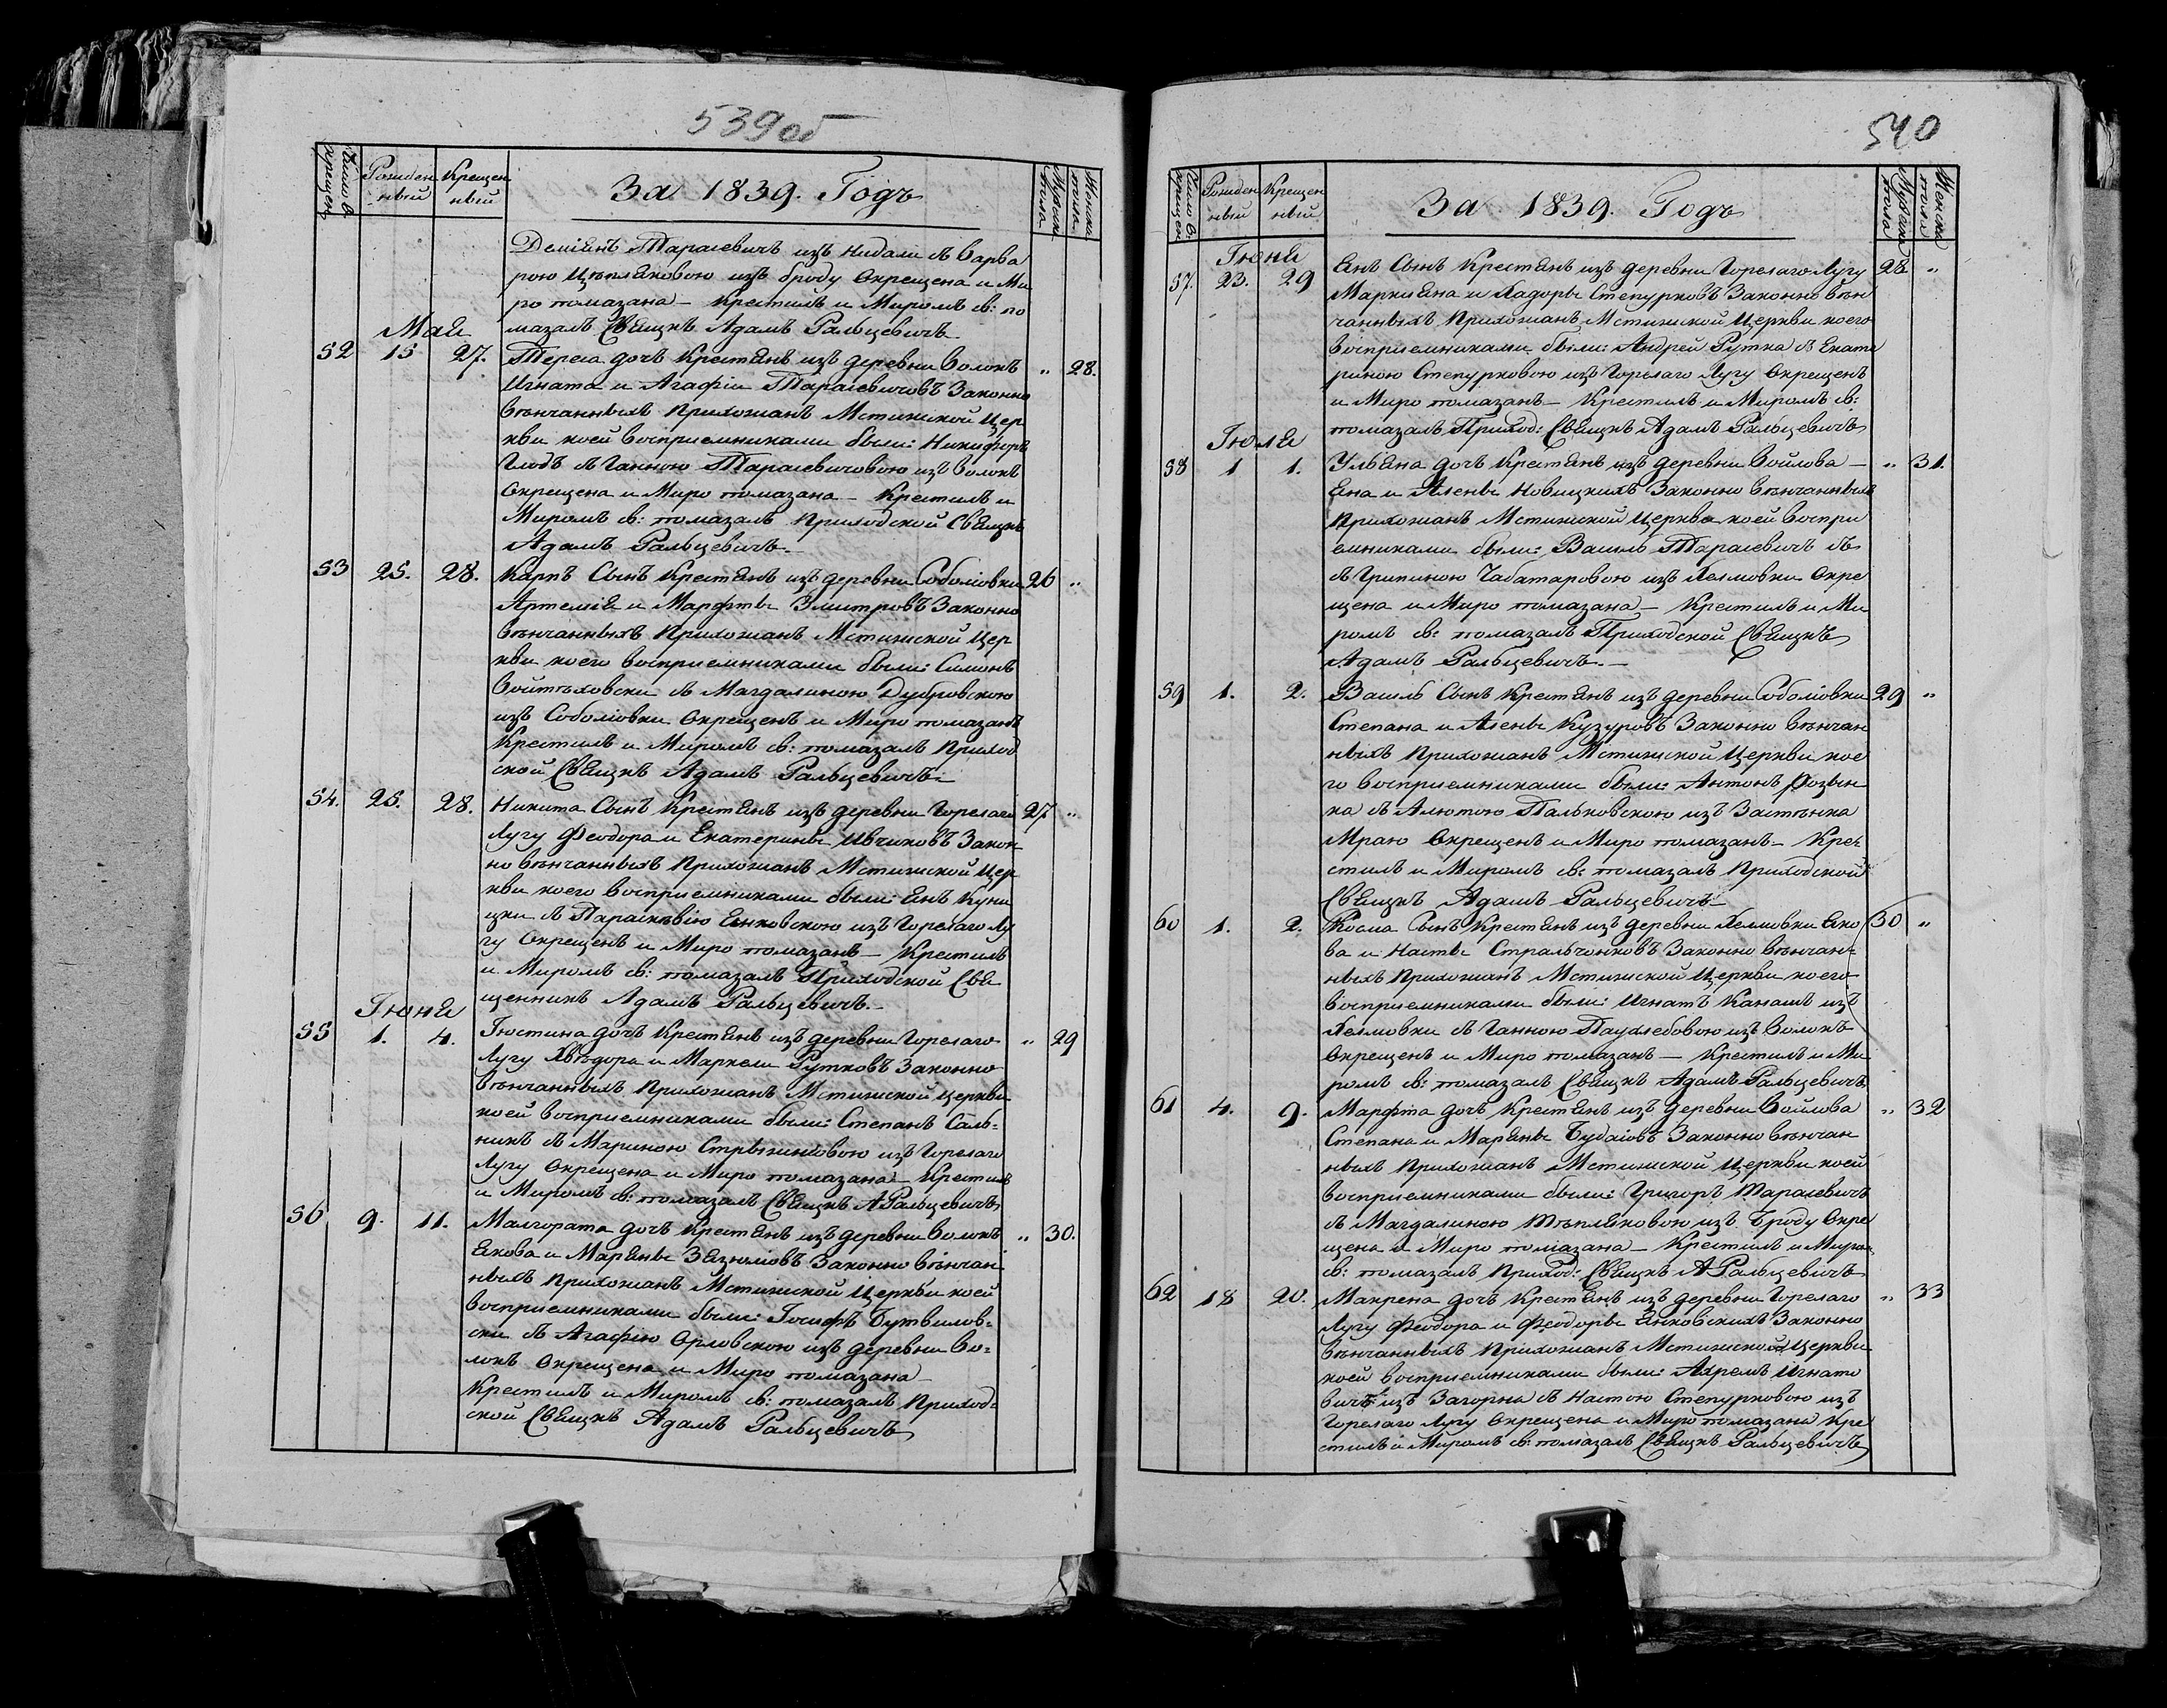 539об
Число кре­щен.
Рожден
ный
Крещен
ный
За 1839. Годъ
Мужеска пола
Женска пола
Деміянъ Тарасевичъ изъ Нидали съ Варва
рою Цѣпляковою изъ броду Окрещена и Ми
ро помазана – Крестилъ и Миромъ св: по
мазалъ Свящкъ Адамъ Ральцевичъ
Мая
52 15 27. Тереса дочь Крестянъ изъ деревни Волокъ „ 28.
Игната и Агафіи Тарасевичовъ Законно
вѣнчанныхъ Прихожанъ Мстижской Цер
кви коей воспріемниками были: Никифоръ
Глодъ съ Ганною Тарасевичовою изъ Волокъ
Окрещена и Миро помазана – Крестилъ и
Миромъ св: помазалъ Приходской Свящкъ
Адамъ Ральцевичъ –
53 25. 28. Карпъ Сынъ Крестянъ изъ деревни Соболіовки 26 „
Артемія и Марфты Змитровъ Законно
вѣнчанныхъ Прихожанъ Мстижской Цер
кви коего воспріемниками были: Симонъ
Войтѣховски съ Магдалиною Дубровскою
изъ Соболіовки Окрещенъ и Миро помазанъ
Крестилъ и Миромъ св: помазалъ Приход
ской Свящкъ Адамъ Ральцевичъ –
54. 25. 28. Никита Сынъ Крестянъ изъ деревни Горелаго 27 „
Лугу Феодора и Екатерины Ивчиковъ Закон
но вѣнчанныхъ Прихожанъ Мстижской Цер
кви коего воспріемниками были: Янъ Куни
цки съ Параскѣвію Янковскою изъ Горелаго Лу
гу Окрещенъ и Миро помазанъ – Крестилъ
и Миромъ св: помазалъ Приходской Свя
щенникъ Адамъ Ральцевичъ –
Іюня
55 1. 4. Іюстина дочь Крестянъ изъ деревни Горелаго „ 29
Лугу Хвѣдора и Маркели Рутковъ Законно
вѣнчанныхъ Прихожанъ Мстижской Церкви
коей воспріемниками были: Степанъ Саль-
никъ съ Мариною Стрыжніовою изъ Горелаго
Лугу Окрещена и Миро помазана – Крестилъ
и Миромъ св: помазалъ Свящкъ А Ральцевичъ
56 9. 11. Малгората дочь Крестянъ изъ деревни Волокъ „ 30.
Якова и Маряны Зязюліовъ Законно вѣнчан
ныхъ Прихожанъ Мстижской Церкви коей
воспріемниками были: Іосифъ Бутвилов-
ски съ Агафію Орловскою изъ деревни Во-
локъ Окрещена и Миро помазана –
Крестилъ и Миромъ св: помазалъ Приход-
ской Свящкъ Адамъ Ральцевичъ
540
Число кре­щен
Рожден
ный
Крещен
ный
За 1839. Годъ
Мужеска пола
Женска пола
Іюня
57. 23. 29 Янъ Сынъ Крестянъ изъ деревни Горелаго Лугу 28 „
Маркіяна и Хадоры Степурковъ Законно вѣн
чанныхъ Прихожанъ Мстижской Церкви коего
воспріемниками были: Андрей Рутка съ Екате
риною Степурковою изъ Горелаго Лугу Окрещенъ
и Миро помазанъ – Крестилъ и Миромъ св:
помазалъ Приход: Свящкъ Адамъ Ральцевичъ
Іюля
58 1 1. Ульяна дочь Крестянъ изъ деревни Войлова – „ 31.
Яна и Алены Новицкихъ Законно вѣнчанныхъ
Прихожанъ Мстижской Церкви коей воспрі
емниками были: Василь Тарасевичъ съ
съ Грипиною Чабатаровою изъ Хелмовки Окре
щена и Миро помазана – Крестилъ и Ми
ромъ св: помазалъ Приходской Свящкъ
Адамъ Ральцевичъ. –
59 1. 2. Василь Сынъ Крестянъ изъ деревни Соболіовки 29 „
Степана и Алены Кузуровъ Законно вѣнчан
ныхъ Прихожанъ Мстижской Церкви кое
го воспріемниками были: Антонъ Фозын
ка съ Алютою Пальковскою изъ Застѣнка
Мраю Окрещенъ и Миро помазанъ – Кре
стилъ и Миромъ св: помазалъ Приходской
Свящкъ Адамъ Ральцевичъ –
60 1. 2. Косма Сынъ Крестянъ изъ деревни Хелмовки Яко 30 „
ва и Насты Стральчонковъ Законно вѣнчан-
ныхъ Прихожанъ Мстижской Церкви коего
воспріемниками были: Игнатъ Канашъ изъ
Хелмовки съ Ганною Паухлебовою изъ Волокъ
Окрещенъ и Миро помазанъ – Крестилъ и Ми
ромъ св: помазалъ Свящкъ Адамъ Ральцевичъ
61 4. 9. Марфта дочь Крестянъ изъ деревни Войлова „ 32
Степана и Маряны Будаіовъ Законно вѣнчан
ныхъ Прихожанъ Мстижской Церкви коей
воспріемниками были: Григоръ Тарасевичъ
съ Магдалиною Тѣпляковою изъ Броду Окре
щена и Миро помазана – Крестилъ и Миром:
св: помазалъ Приход: Свящкъ А Ральцевичъ
62 18 20. Макрена дочь Крестянъ изъ деревни Горелаго „ 33
Лугу Феодора и Феодоры Янковскихъ Законно
вѣнчанныхъ Прихожанъ Мстижской Церкви
коей воспріемниками были: Ахремъ Игнато
вичъ изъ Загорья съ Настою Степурковою изъ
Горелаго Лугу Окрещена и Миро помазана Кре
стилъ и Миромъ св: помазалъ Свящкъ Ральцевичъ